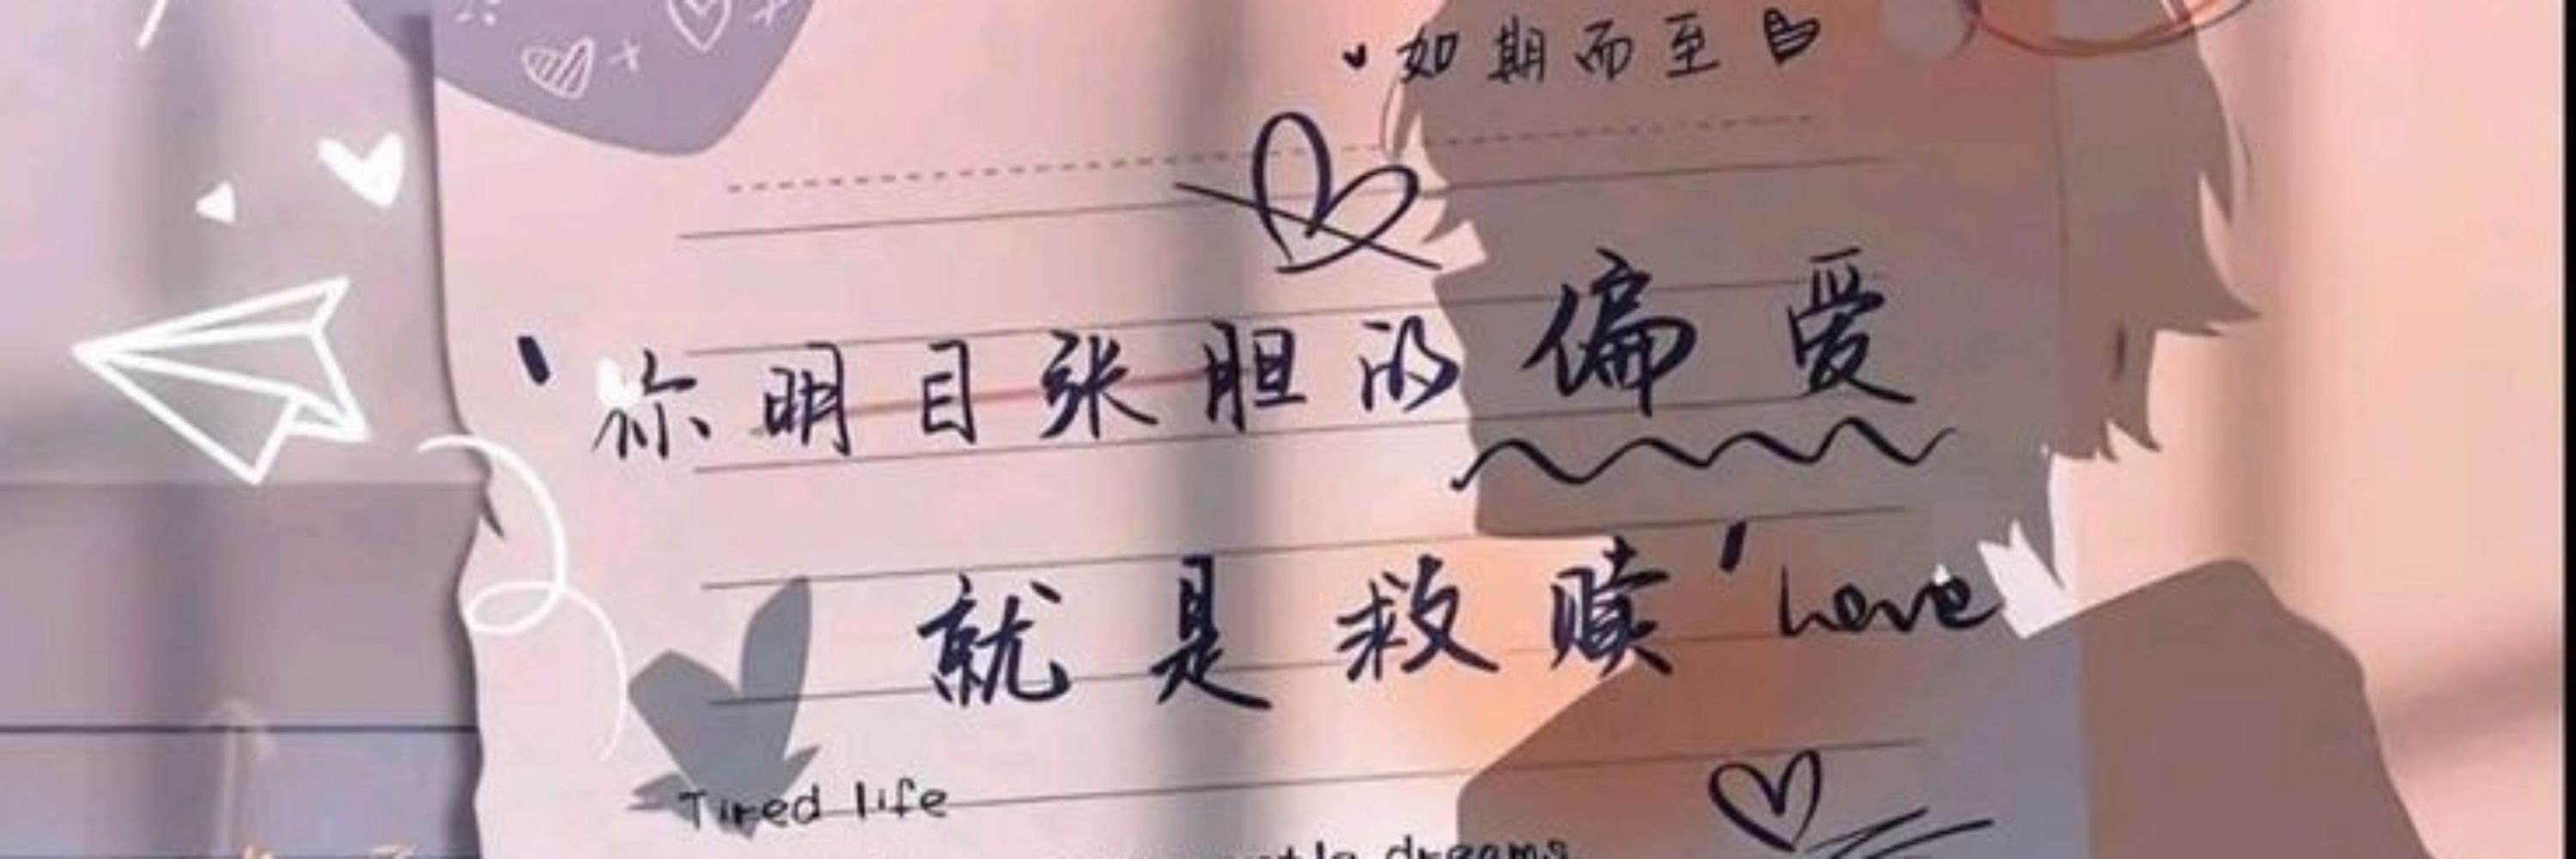 如期而至
'你明目张胆的偏爱
就是救赎' Love
Tired life
dreams